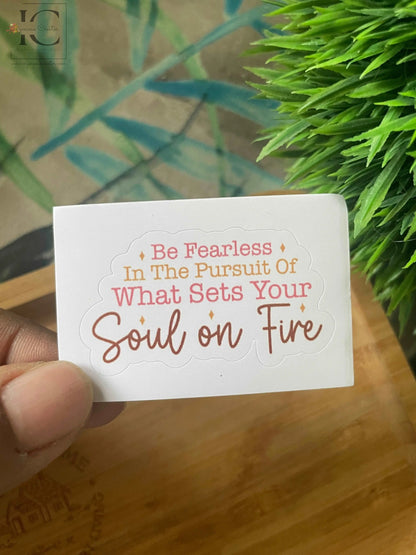 IC
Be Fearless
In The Pursuit Of
What Sets Your
Soul on Fire